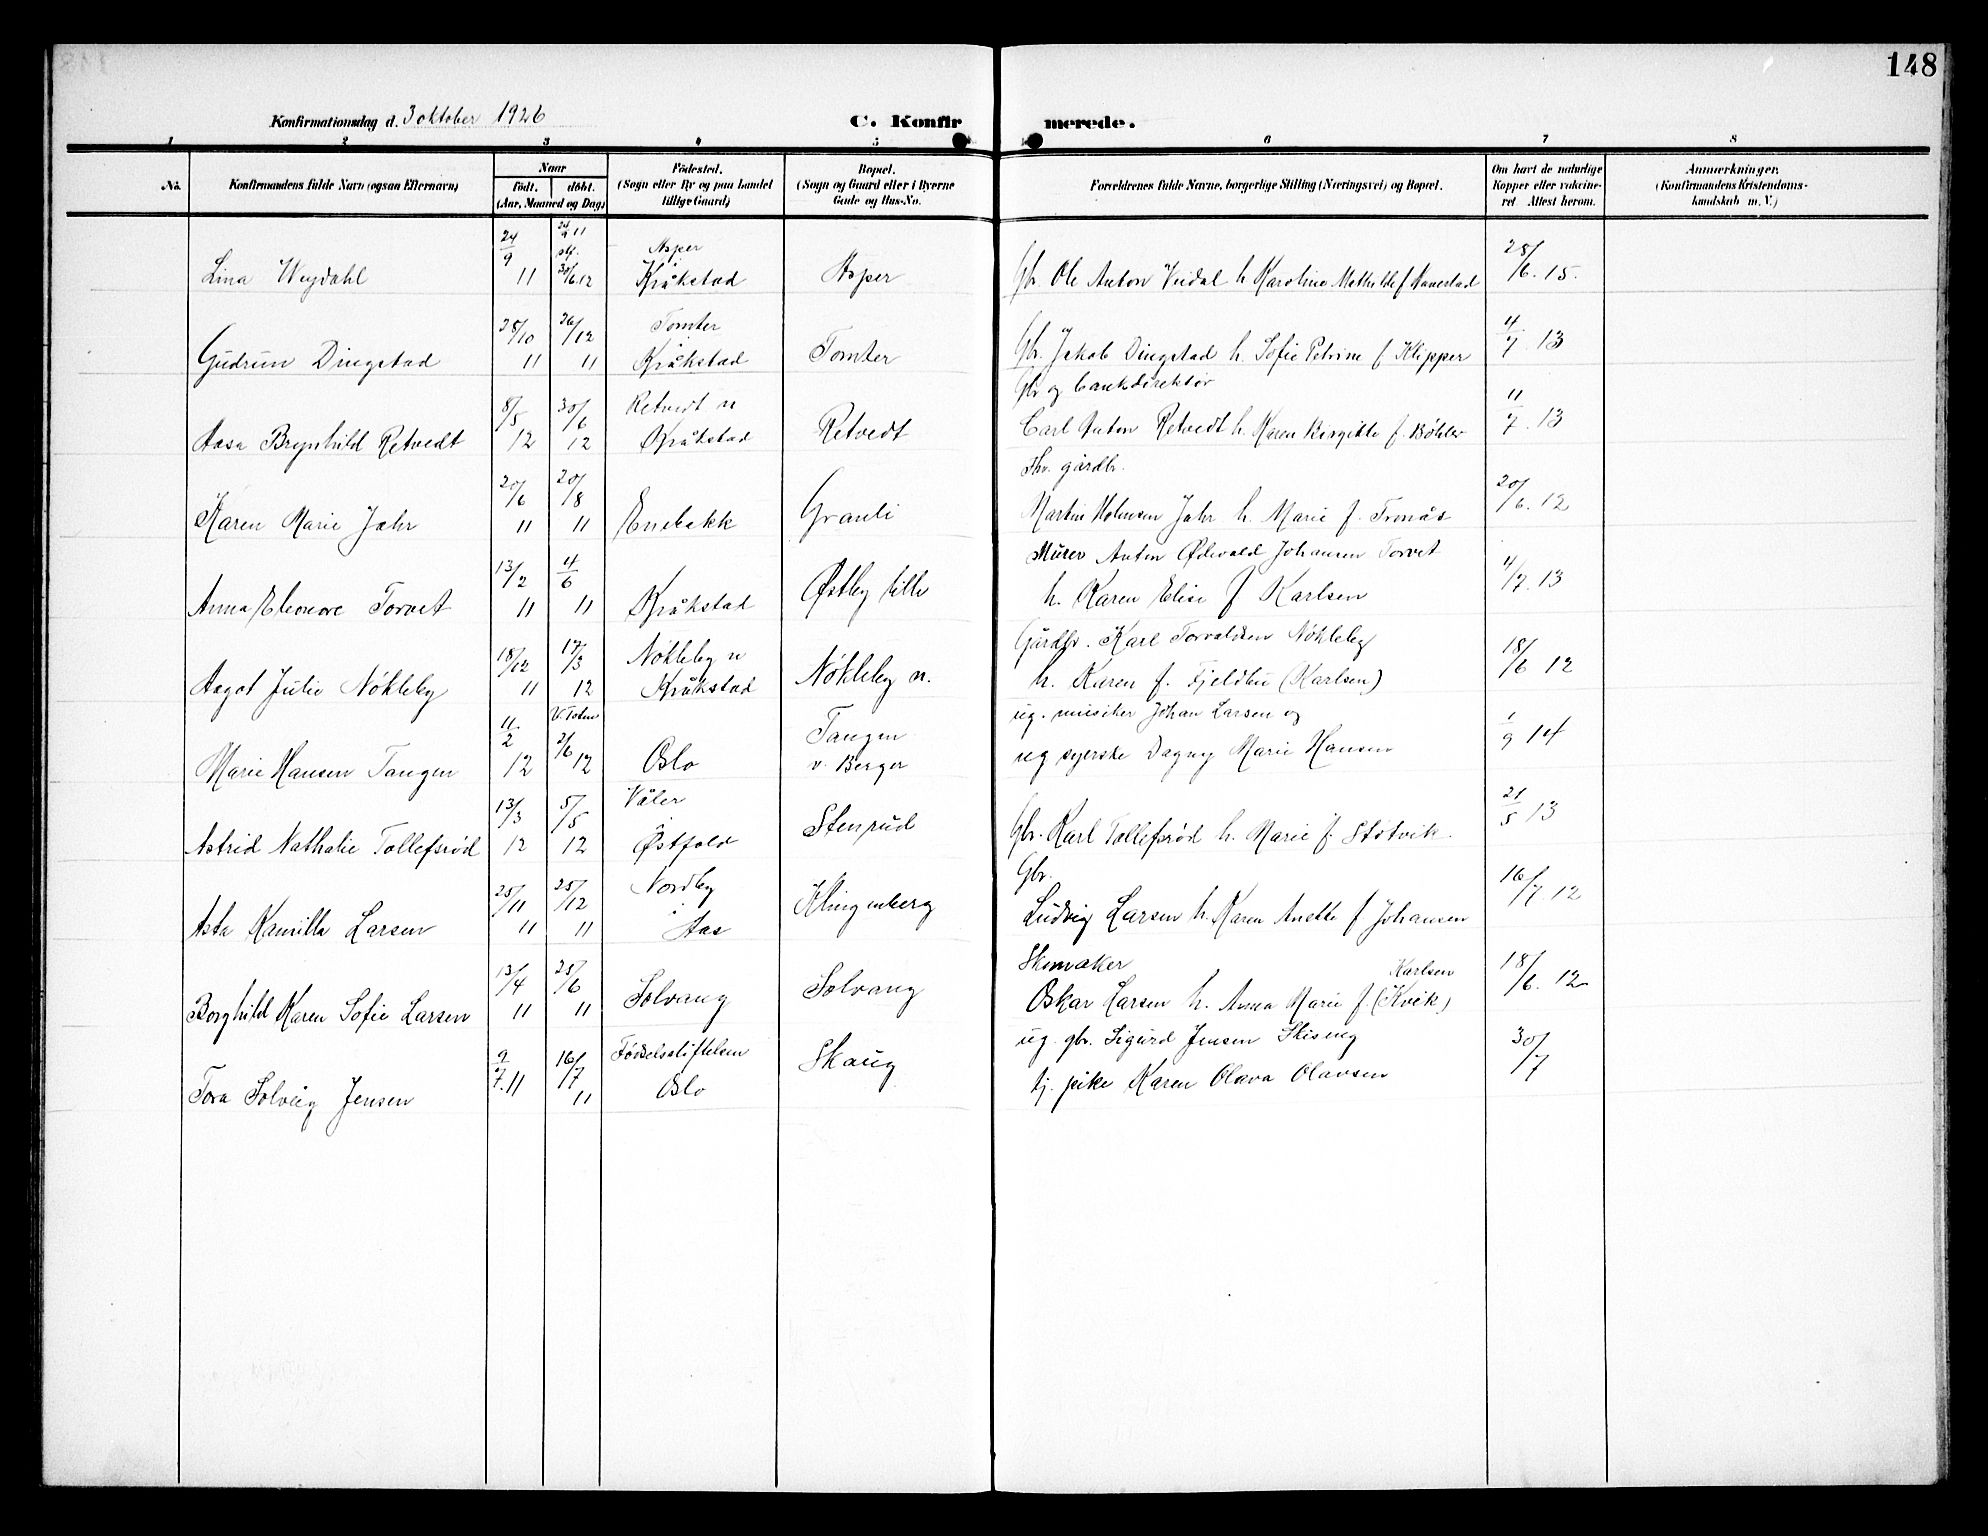 148
Konfirmationsdag d. 3 oktober 1926 C. Konfirmerede.
1 2 3 4 5 6 7 8
No. Konfirmandens fulde Navn (ogsaa Efternavn) Naar født. døbt. (Aar, Maaned og Dag) Födested. (Sogn eller By og paa Landet tillige Gaard) Bopæl. (Sogn og Gaard eller i Byerne Gade og Hus-No. Forældrenes fulde Navne, borgerlige Stilling (Næringsvei) og Bopæl. Om havt de naturlige Kopper eller vaccineret Attest herom. Anmærkninger. (Konfirmandens Kristendomskundskab m. V.)
24/9 24/9 11 Asper 28/6.15.
Lina Weydahl 11 30/6.12 Kråkstad Asper Gbr. Ole Anton Veidal h. Karoline Mathilde f.
28/10 26/12 Tomter 4/7.13
Gudrun Dingstad 11 11 Kråkstad Tomter Gbr. Jakob Dingstad h. Sofie Petrine f. Klipper
Gbr og bankdirektør
8/5 30/6 Retvedt n 11/7.13
Aasa Brynhild Retvedt 12 12 Kråkstad Retvedt Carl Anton Retvedt h. Karen Birgitte f. Böhler
Fhv. gårdbr.
20/6 20/8 20/6.12
Karen Marie Jahr 11 11 Enebakk Granli Martin Holmsen Jahr h. Marie f. Tronås
13/2 4/6 Murer Anton Ødevald Johansen Torvet 4/7.13
Anna Eleonore Torvet 11 11 Kråkstad Østby lille h. Karen Elise f Karlsen
18/12 17/3 Nökleby n Gårdbr. Karl Torvaldsen Nökleby 18/6 12
Aagot Julie Nökleby 11 12 Kråkstad Nökleby n. h. Karen f. Fjeldbu (Karlsen)
11/2 V. Toten Tangen ug. musiker Johan Larsen og 1/9 14
Marie Hansen Tangen 12 2/6 12 Oslo v. Berger ug syerske Dagny Marie Hansen
13/3 5/5 Våler 21/5 13
Astrid Nathalie Tollefsröd 12 12 Östfold Stenrud Gbr. Karl Tollefsröd h. Marie f. Stötvik.
Gbr.
25/11 25/12 Nordby 16/7 12
Asta Kamilla Larsen 11 11 Aas Klingenberg Ludvig Larsen h. Karen Anette f Johansen
13/4 25/6 Skomaker Karlsen 18/6.12
Borghild Karen Sofie Larsen 11 11 Solvang Solvang Oskar Larsen h. Anna Marie f. (Kvik)
9/7.11 16/7 Födselsstiftelsen Skaug ug. gbr. Sigurd Jensen 30/7
Tora Solveig Jensen 11 Oslo tj. pike Karen Olava Olavsen